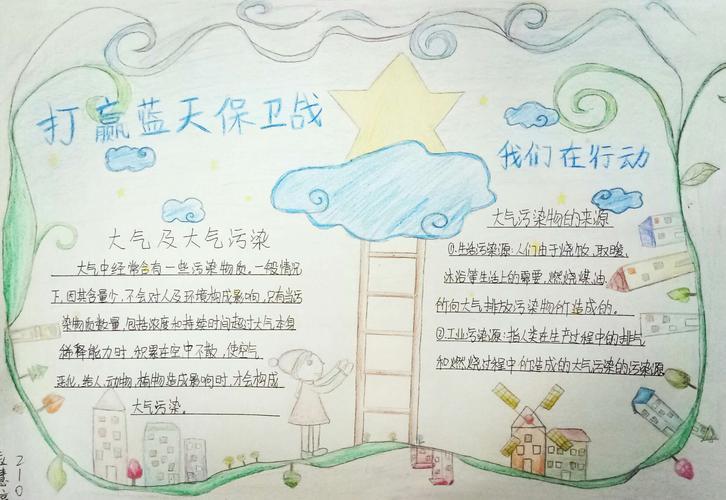 打赢蓝天保卫战
我们在行动
大气及大气污染
大气中经常含有一些污染物质。一般情况
下,因其含量少,不会对人及环境构成影响,只有当污
染物质数量,包括浓度和持续时间超过大气本身
稀释能力时,积累在空中不散,使空气
恶化,给人,动物,植物造成影响时,才会构成
大气污染。
大气污染物的来源
①生活污染源:人们由于烧饭,取暖,
沐浴等生活上的需要,燃烧煤油,
所向大气排放污染物所造成的。
②工业污染源:指人类在生产过程中的排气
和燃烧过程中所造成的大气污染的污染源
210